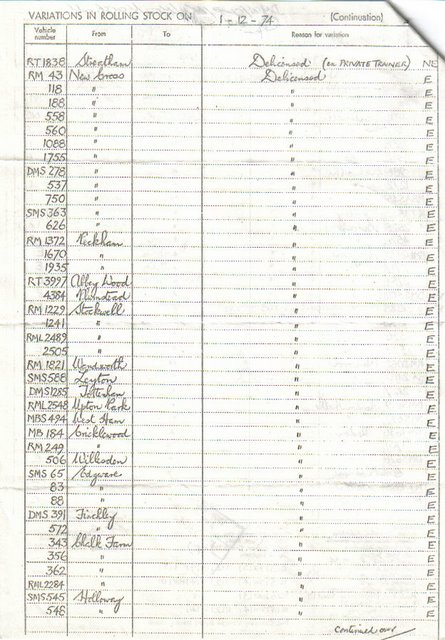 VARIATIONS IN ROLLING STOCK ON 1-12-74 (Continuation)
Vehicle number From To Reason for variation
RT 1838 Streatham Delicensed (ex PRIVATE TRAINER) NL
RM 43 New Cross Delicensed E
118 " " E
188 " " E
558 " " E
560 " " E
1088 " " E
1755 " " E
DMS 278 " " E
537 " " E
750 " " E
SMS 363 " " E
626 " " E
RM 1372 Peckham " E
1670 " " E
1935 " " E
RT 3997 Abbey Wood " E
4384 Plumstead " E
RM 1229 Stockwell " E
1241 " " E
RML 2489 " " E
2505 " " E
RM 1821 Wandsworth " E
SMS 588 Leyton " E
DMS 1285 Tottenham " E
RML 2548 Upton Park " E
MBS 494 West Ham " E
MB 184 Cricklewood " E
RM 249 " " E
506 Willesden " E
SMS 65 Edgware " E
83 " " E
88 " " E
DMS 391 Finchley " E
572 " " E
343 Chalk Farm " E
356 " " E
362 " " E
RML 2284 " " E
SMS 545 Holloway " E
548 " " E
continued over